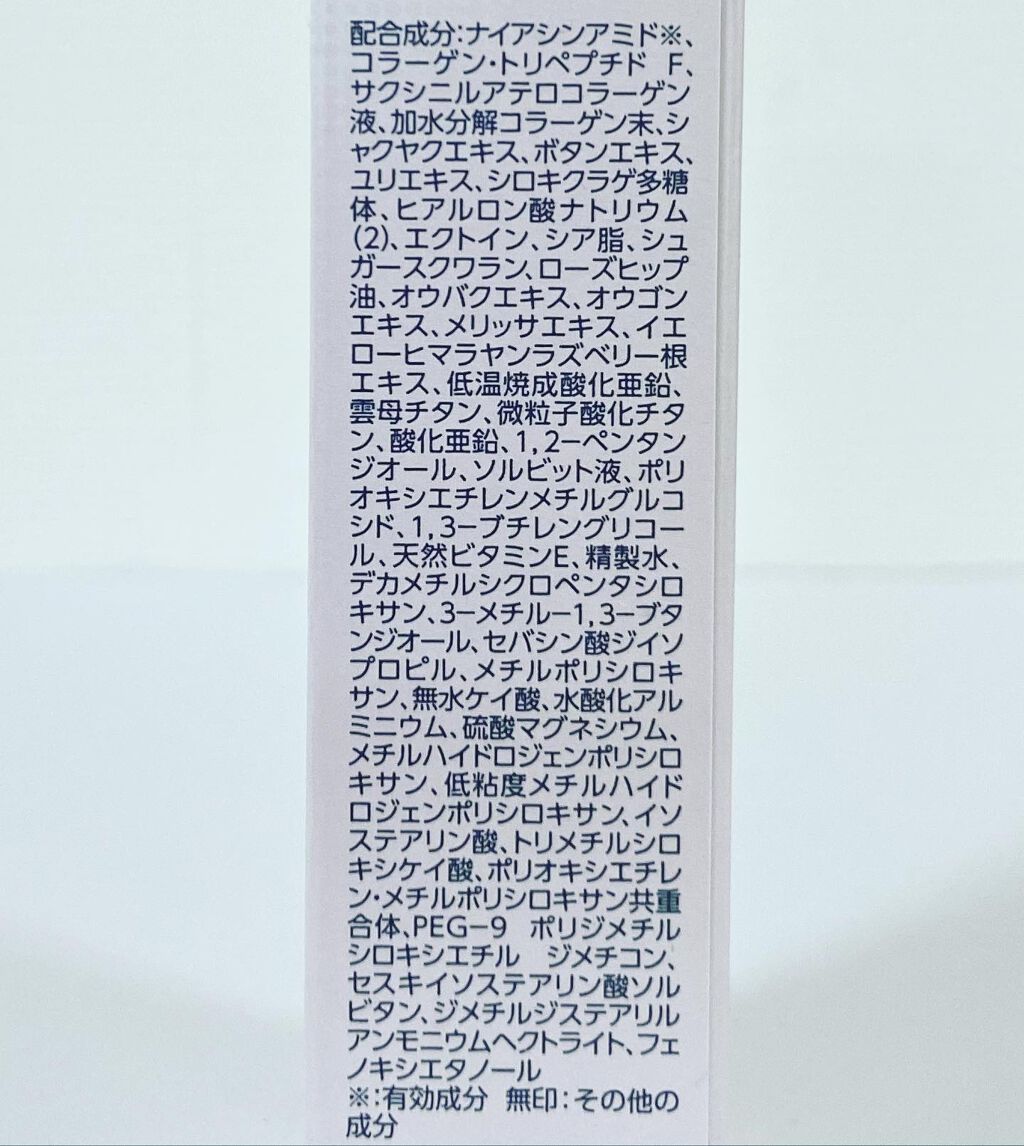 配合成分:ナイアシンアミド※、
コラーゲン・トリペプチド F、
サクシニルアテロコラーゲン
液、加水分解コラーゲン末、シ
ャクヤクエキス、ボタンエキス、
ユリエキス、シロキクラゲ多糖
体、ヒアルロン酸ナトリウム
(2)、エクトイン、シア脂、シュ
ガースクワラン、ローズヒップ
油、オウバクエキス、オウゴン
エキス、メリッサエキス、イエ
ローヒマラヤンラズベリー根
エキス、低温焼成酸化亜鉛、
雲母チタン、微粒子酸化チタ
ン、酸化亜鉛、1,2−ペンタン
ジオール、ソルビット液、ポリ
オキシエチレンメチルグルコ
シド、1,3−ブチレングリコー
ル、天然ビタミンE、精製水、
デカメチルシクロペンタシロ
キサン、3−メチル−1,3−ブタ
ンジオール、セバシン酸ジイソ
プロピル、メチルポリシロキ
サン、無水ケイ酸、水酸化アル
ミニウム、硫酸マグネシウム、
メチルハイドロジェンポリシロ
キサン、低粘度メチルハイド
ロジェンポリシロキサン、イソ
ステアリン酸、トリメチルシロ
キシケイ酸、ポリオキシエチレ
ン・メチルポリシロキサン共重
合体、PEG−9 ポリジメチル
シロキシエチル ジメチコン、
セスキイソステアリン酸ソル
ビタン、ジメチルジステアリル
アンモニウムヘクトライト、フェ
ノキシエタノール
※:有効成分 無印:その他の
成分